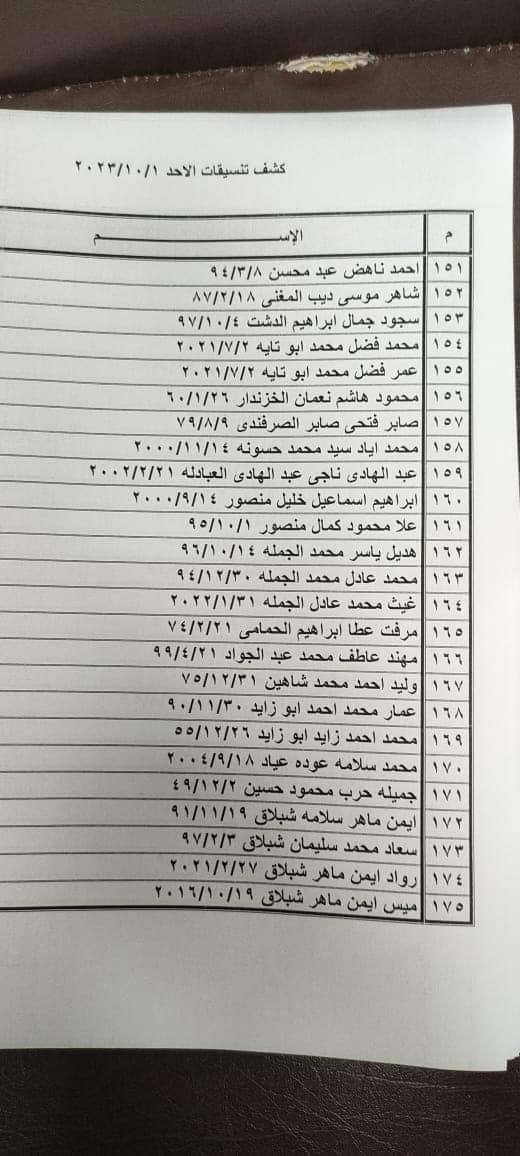 كشف تنسيقات الاحد ٢٠٢٣/١٠/١
م الإســـــــــــــــم
١٥١ احمد ناهض عبد محسن ٩٤/٣/٨
١٥٢ شاهر موسى ديب المغنى ٨٧/٢/١٨
١٥٣ سجود جمال ابراهيم الدشت ٩٧/١٠/٤
١٥٤ محمد فضل محمد ابو تايه ٢٠٢١/٧/٢
١٥٥ عمر فضل محمد ابو تايه ٢٠٢١/٧/٢
١٥٦ محمود هاشم نعمان الخزندار ٦٠/١/٢٦
١٥٧ صابر فتحى صابر الصرفندى ٧٩/٨/٩
١٥٨ محمد اياد سيد محمد حسونه ٢٠٠٠/١١/١٤
١٥٩ عبد الهادى ناجى عبد الهادى العبادله ٢٠٠٢/٢/٢١
١٦٠ ابراهيم اسماعيل خليل منصور ٢٠٠٠/٩/١٤
١٦١ علا محمود كمال منصور ٩٥/١٠/١
١٦٢ هديل ياسر محمد الجمله ٩٦/١٠/١٤
١٦٣ محمد عادل محمد الجمله ٩٤/١٢/٣٠
١٦٤ غيث محمد عادل الجمله ٢٠٢٢/١/٣١
١٦٥ مرفت عطا ابراهيم الحمامى ٧٤/٢/٢١
١٦٦ مهند عاطف محمد عبد الجواد ٩٩/٤/٢١
١٦٧ وليد احمد محمد شاهين ٧٥/١٢/٣١
١٦٨ عمار محمد احمد ابو زايد ٩٠/١١/٣٠
١٦٩ محمد احمد زايد ابو زايد ٥٥/١٢/٢٦
١٧٠ محمد سلامه عوده عياد ٢٠٠٤/٩/١٨
١٧١ جميله حرب محمود حسين ٤٩/١٢/٢
١٧٢ ايمن ماهر سلامه شبلاق ٩١/١١/١٩
١٧٣ سعاد محمد سليمان شبلاق ٩٧/٢/٣
١٧٤ رواد ايمن ماهر شبلاق ٢٠٢١/٢/٢٧
١٧٥ ميس ايمن ماهر شبلاق ٢٠١٦/١٠/١٩